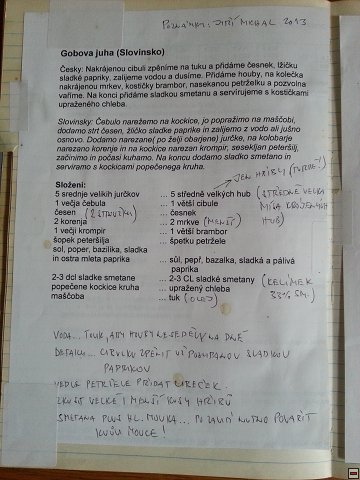 POZNÁMKY: JIŘÍ MICHAL 2013
Gobova juha (Slovinsko)
Česky: Nakrájenou cibuli zpěníme na tuku a přidáme česnek, lžičku
sladké papriky, zalijeme vodou a dusíme. Přidáme houby, na kolečka
nakrájenou mrkev, kostičky brambor, nasekanou petrželku a pozvolna
vaříme. Na konci přidáme sladkou smetanu a servírujeme s kostičkami
upraženého chleba.
Slovinsky: Čebulo narežemo na kockice, jo popražimo na maščobi,
dodamo strt česen, žličko sladke paprike in zalijemo z vodo ali jušno
osnovo. Dodamo narezane( po želji obarjene) jurčke, na kolobarje
narezano korenje in na kockice narezan krompir, sesekljan peteršilj,
začinimo in počasi kuhamo. Na koncu dodamo sladko smetano in
serviramo s kockicami popečenega kruha.
JEN HŘIBY
Složení:
5 srednje velikih jurčkov ... 5 středně velkých hub (STŘEDNĚ VELKÁ
1 večja čebula ... 1 větší cibule MÍSA KRÁJENÝCH
česen (2 STROUŽKY) ... česnek HUB)
2 korenja ... 2 mrkve (MENŠÍ)
1 večji krompir ... 1 větší brambor
šopek peteršilja ... špetku petržele
sol, poper, bazilika, sladka
in ostra mleta paprika ... sůl, pepř, bazalka, sladká a pálivá
paprika
2-3 dcl sladke smetane ... 2-3 CL sladké smetany (KELÍMEK
popečene kockice kruha ... upražený chleba 33% SM.)
maščoba ... tuk (OLEJ)
VODA... TOLIK, ABY HOUBY NESEDĚLY NA DNĚ
DETAIL... CIBULKU ZPĚNIT UŽ SLADKOU
PAPRIKOU
VEDLE PETRŽELE PŘIDAT LIBEČEK.
ZKUSIT VELKÉ I MENŠÍ KUSY HŘIBŮ
SMETANA PLUS HL. MOUKA... PO ZALITÍ NUTNO POVAŘIT
KVŮLI MOUCE!